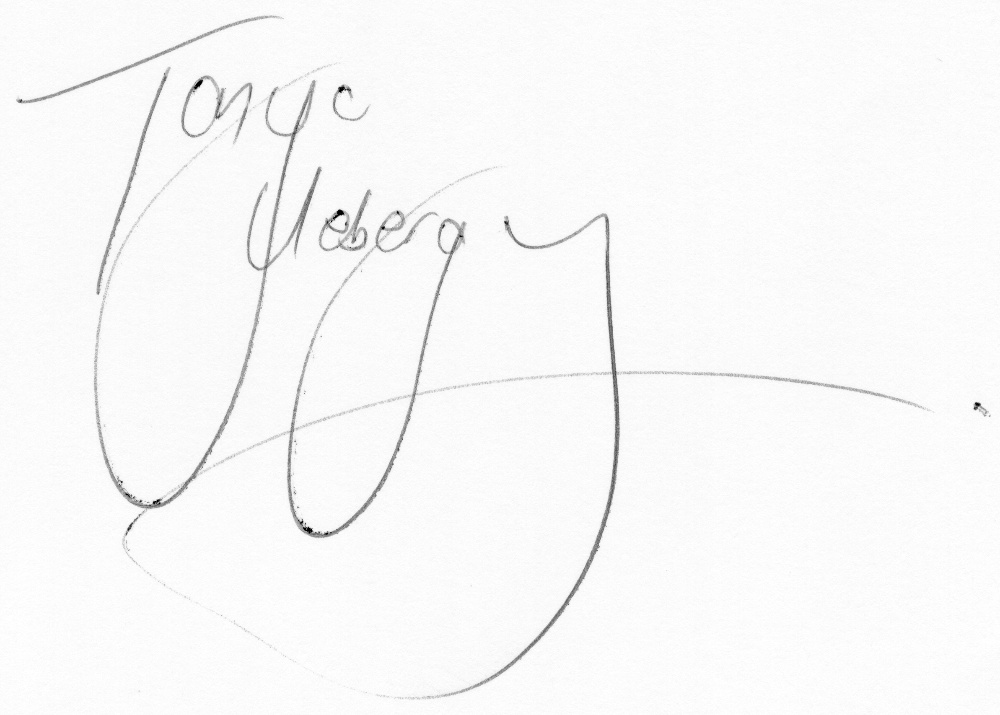 Tonya
Ueberg